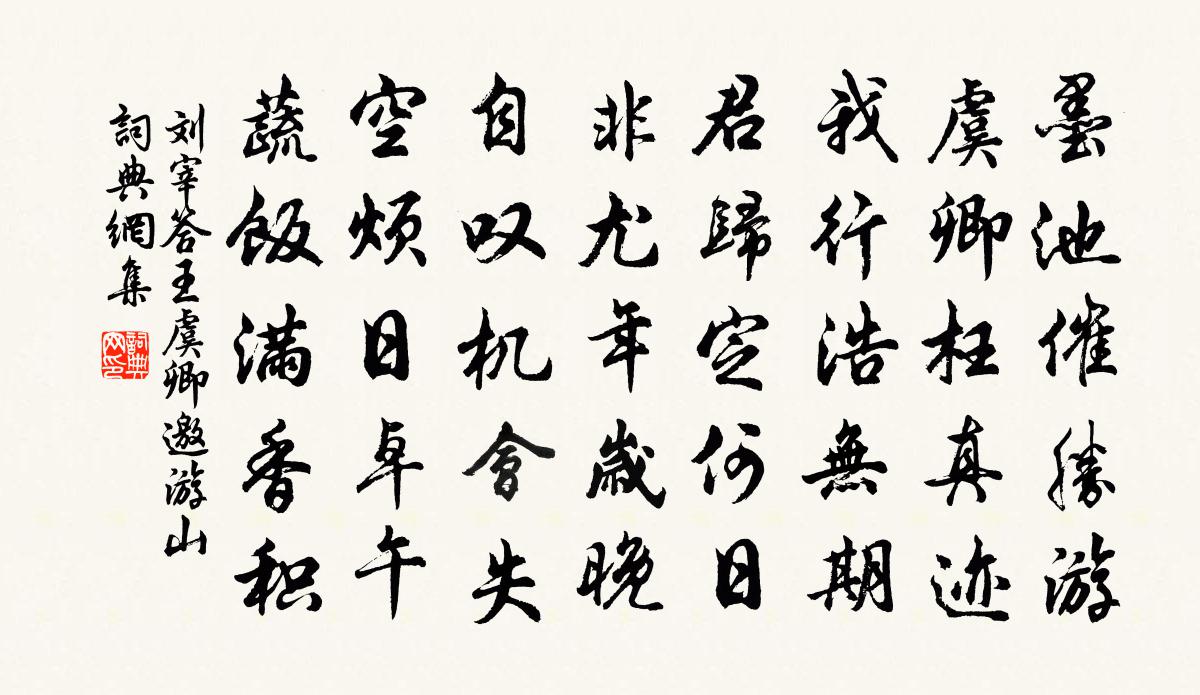 墨池催勝游
虞卿枉真迹
我行浩無期
君歸定何日
非尤年歲晚
自叹机會失
空烦日卓午
蔬飯满香积
刘宰答王虞卿邀游山
詞典網集
詞典网印